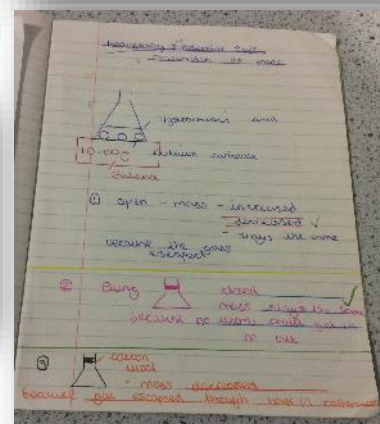 Conservation of mass
Hydrochloric acid
10.00g calcium carbonate
balance
① open - mass - increased
decreased ✓
- stays the same
because the gas
escaped
② Bung closed
mass stays the same ✓
because no atoms could get in
or out
③ cotton
wool
- mass decreased
because gas escaped though holes in